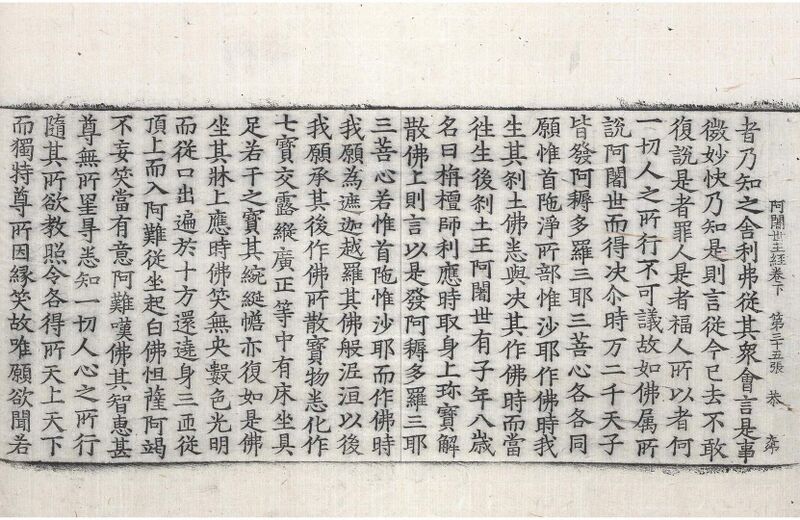 阿闍世王經卷下　第三十五張　恭
者乃知之舍利弗從其衆會言是事
微妙快乃知是則言從今已去不敢
復說是者罪人是者福人所以者何
一切人之所行不可議故如佛屬所
說阿闍世而得決尒時万二千天子
皆發阿耨多羅三耶三菩心各各同
願惟首陁淨所部惟沙耶作佛時我
生其刹土佛悉與决其作佛時而當
徃生後刹土王阿闍世有子年八歲
名曰栴檀師利應時取身上珎寶解
散佛上則言以是發阿耨多羅三耶
三菩心若惟首陁惟沙耶而作佛時
我願為遮迦越羅其佛般泥洹以後
我願承其後作佛所散寶物悉化作
七寶交露縱廣正等中有床坐具
足若干之寶其綩綖幨亦復如是佛
坐其牀上應時佛笑無央數色光明
而從口出遍於十方還遶身三匝從
頂上而入阿難從坐起白佛怛薩阿竭
不妄笑當有意阿難嘆佛其智惠甚
尊無所罣㝵悉知一切人心之所行
隨其所欲教照令各得所天上天下
而獨特尊所因緣笑故唯願欲聞若